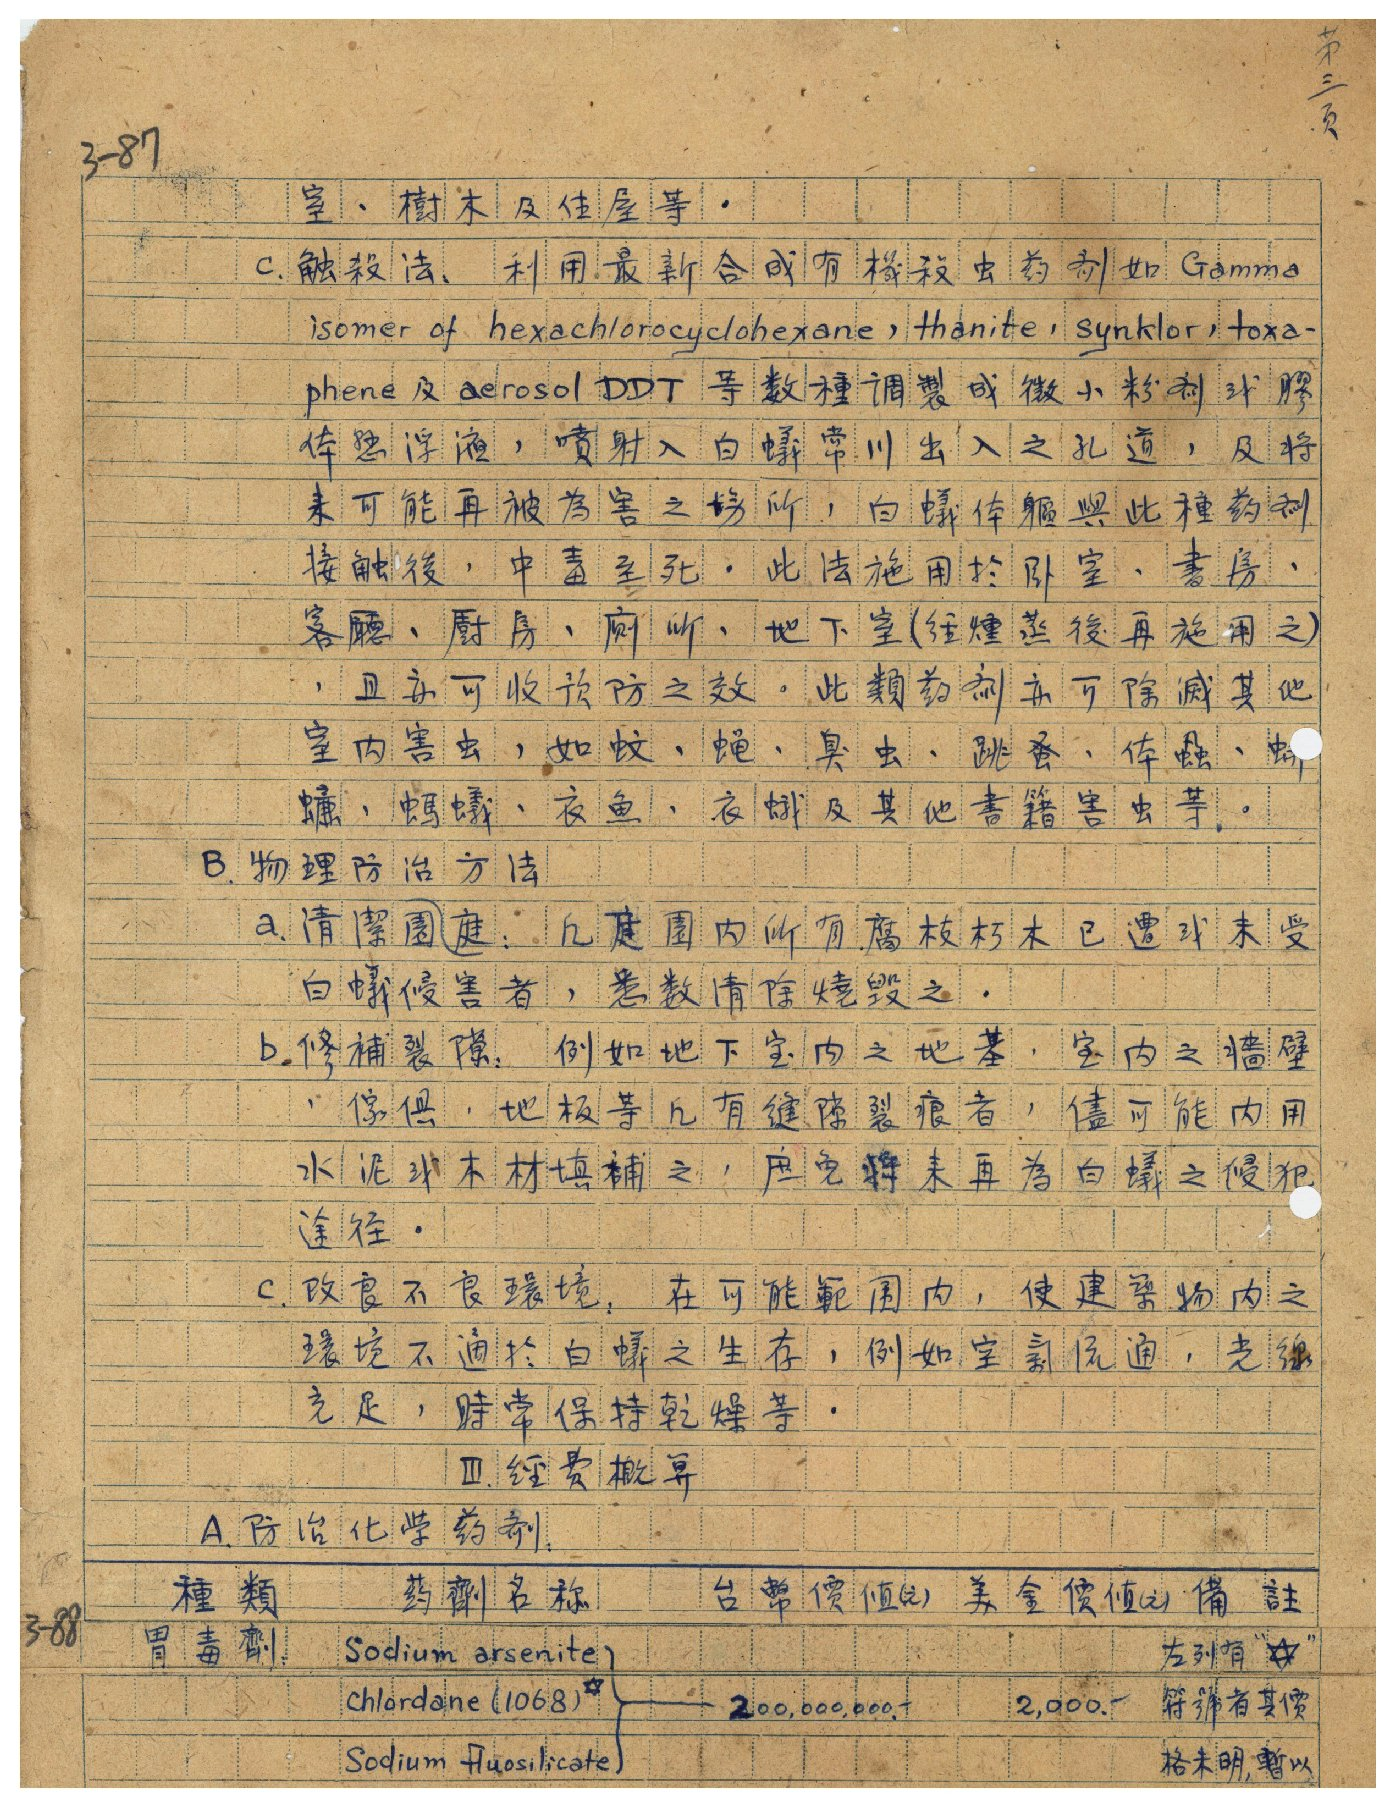 第三頁
3-87
室、樹木及住屋等。
c. 触殺法、利用最新合成有機殺虫药剂如 Gamma
isomer of hexachlorocyclohexane, thanite, synklor, toxa-
phene 及 aerosol DDT 等数種調製成微小粉剂或膠
体悬浮液，噴射入白蟻常川出入之孔道，及将
来可能再被為害之場所，白蟻体軀與此種药剂
接触後，中毒至死。此法施用於卧室、書房、
客廳、厨房、廁所、地下室(經燻蒸後再施用之)
，且亦可收預防之效。此類药剂亦可除滅其他
室内害虫，如蚊、蝇、臭虫、跳蚤、体蝨、蟑
螂、螞蟻、衣魚、衣蛾及其他書籍害虫等。
B. 物理防治方法
a. 清潔園庭：凡庭園内所有腐枝朽木已遭或未受
白蟻侵害者，悉数清除燒毀之。
b. 修補裂隙：例如地下室内之地基，室内之牆壁
，傢俱，地板等凡有縫隙裂痕者，儘可能内用
水泥或木材填補之，庶免将来再為白蟻之侵犯
途径。
c. 改良不良環境：在可能範圍内，使建築物内之
環境不適於白蟻之生存，例如空氣流通，光線
充足，時常保持乾燥等。
III. 經費概算
A. 防治化学药剂：
種類 药劑名称 台幣價值(元) 美金價值(元) 備註
3-88
胃毒劑： Sodium arsenite 左列有"☆"
Chlordane (1068)☆ 200,000,000.- 2,000.- 符號者其價
Sodium fluosilicate 格未明,暫以